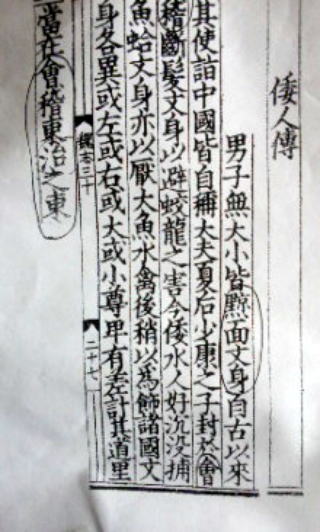 倭人傳
男子無大小皆黥面文身自古以來
其使詣中國皆自稱大夫夏后少康之子封於會
稽斷髮文身以避蛟龍之害今倭水人好沉没捕
魚蛤文身亦以厭大魚水禽後稍以為飾諸國文
身各異或左或右或大或小尊卑有差計其道里
魏志三十 二十七
當在會稽東治之東